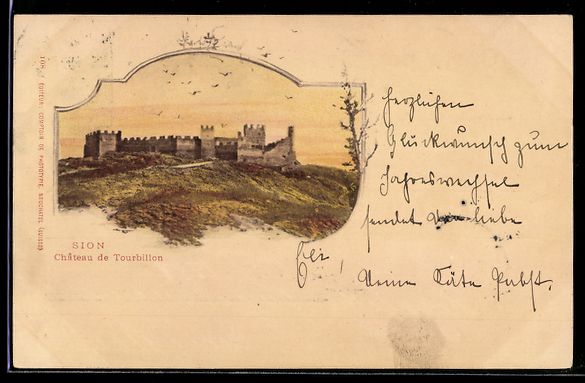 108. ÉDITEUR: COMPTOIR DE PHOTOTYPIE, NEUCHATEL (SUISSE)
SION
Château de Tourbillon
Herzlichen
Glückwunsch zum
Jahreswechsel
sendet liebe
Deine Käte Pabst.